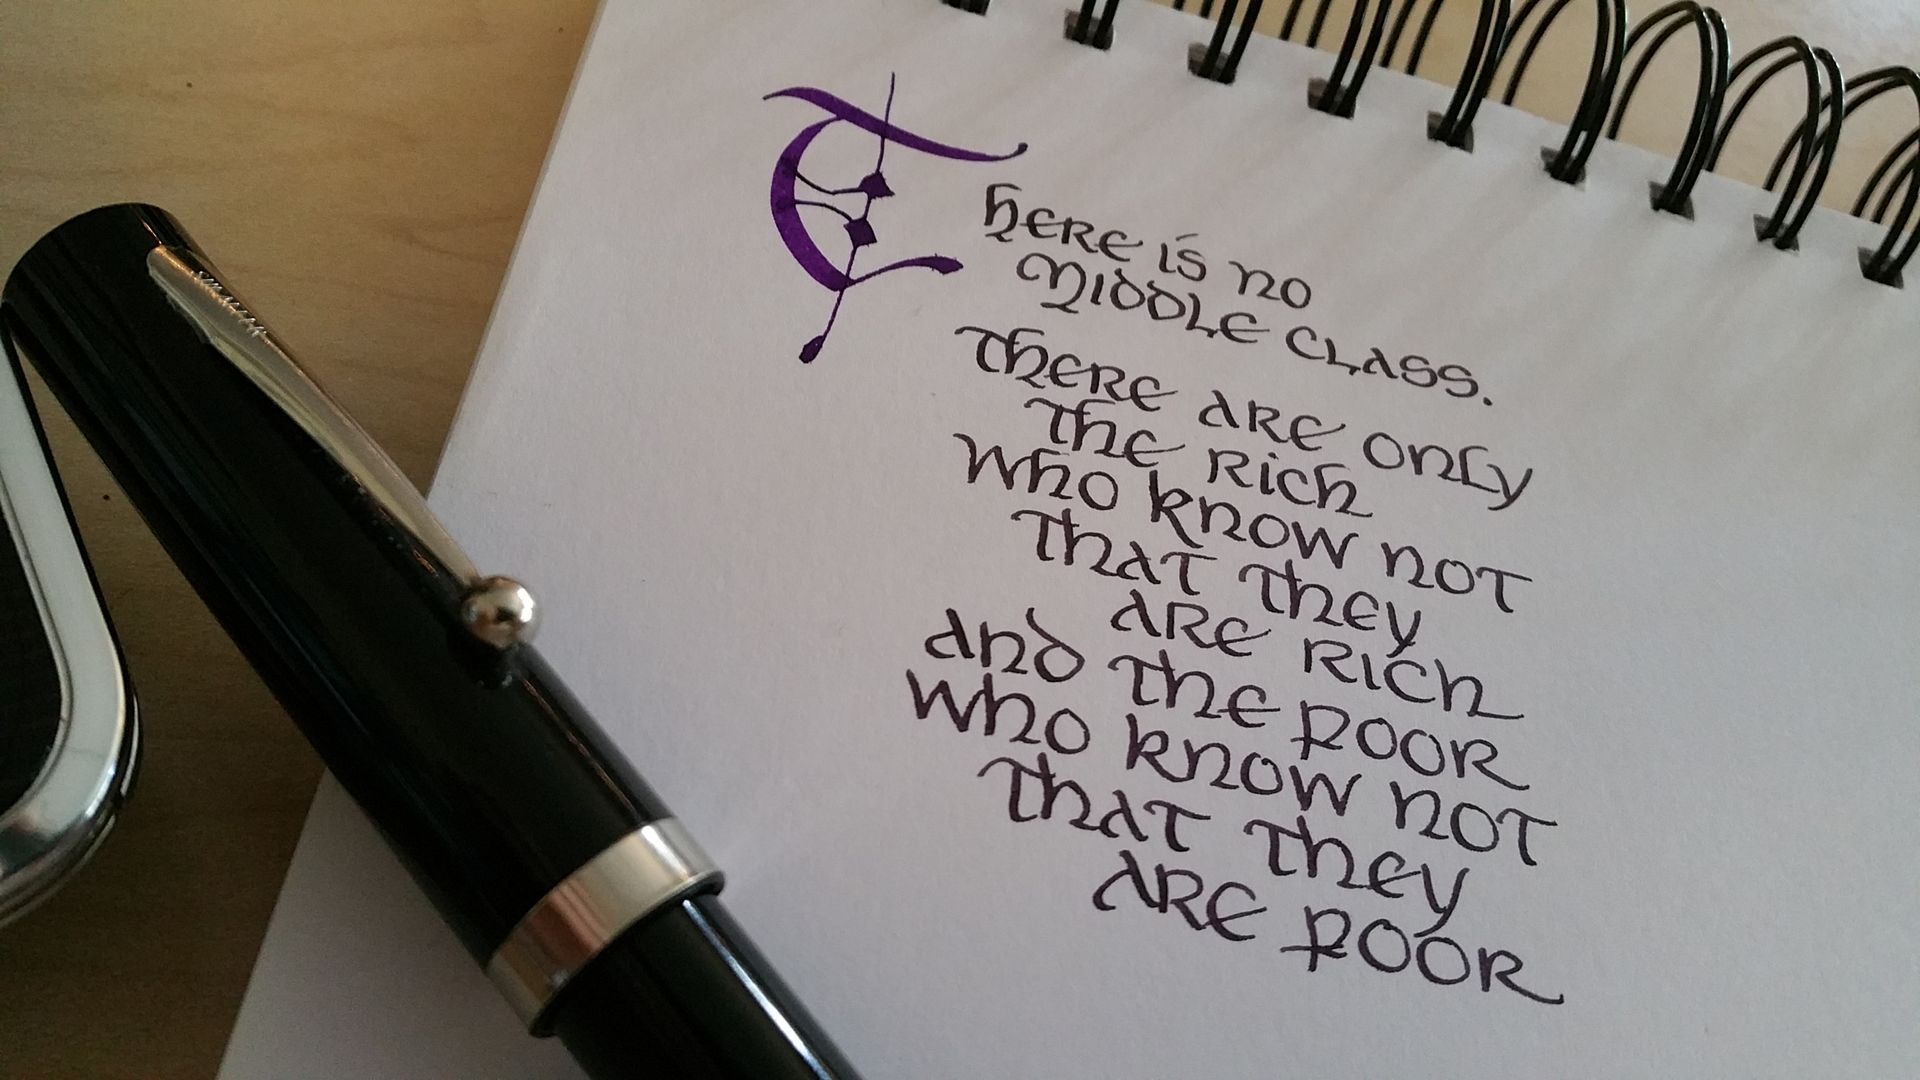 There is no
middle class.
There are only
the rich
who know not
that they
are rich
and the poor
who know not
that they
are poor